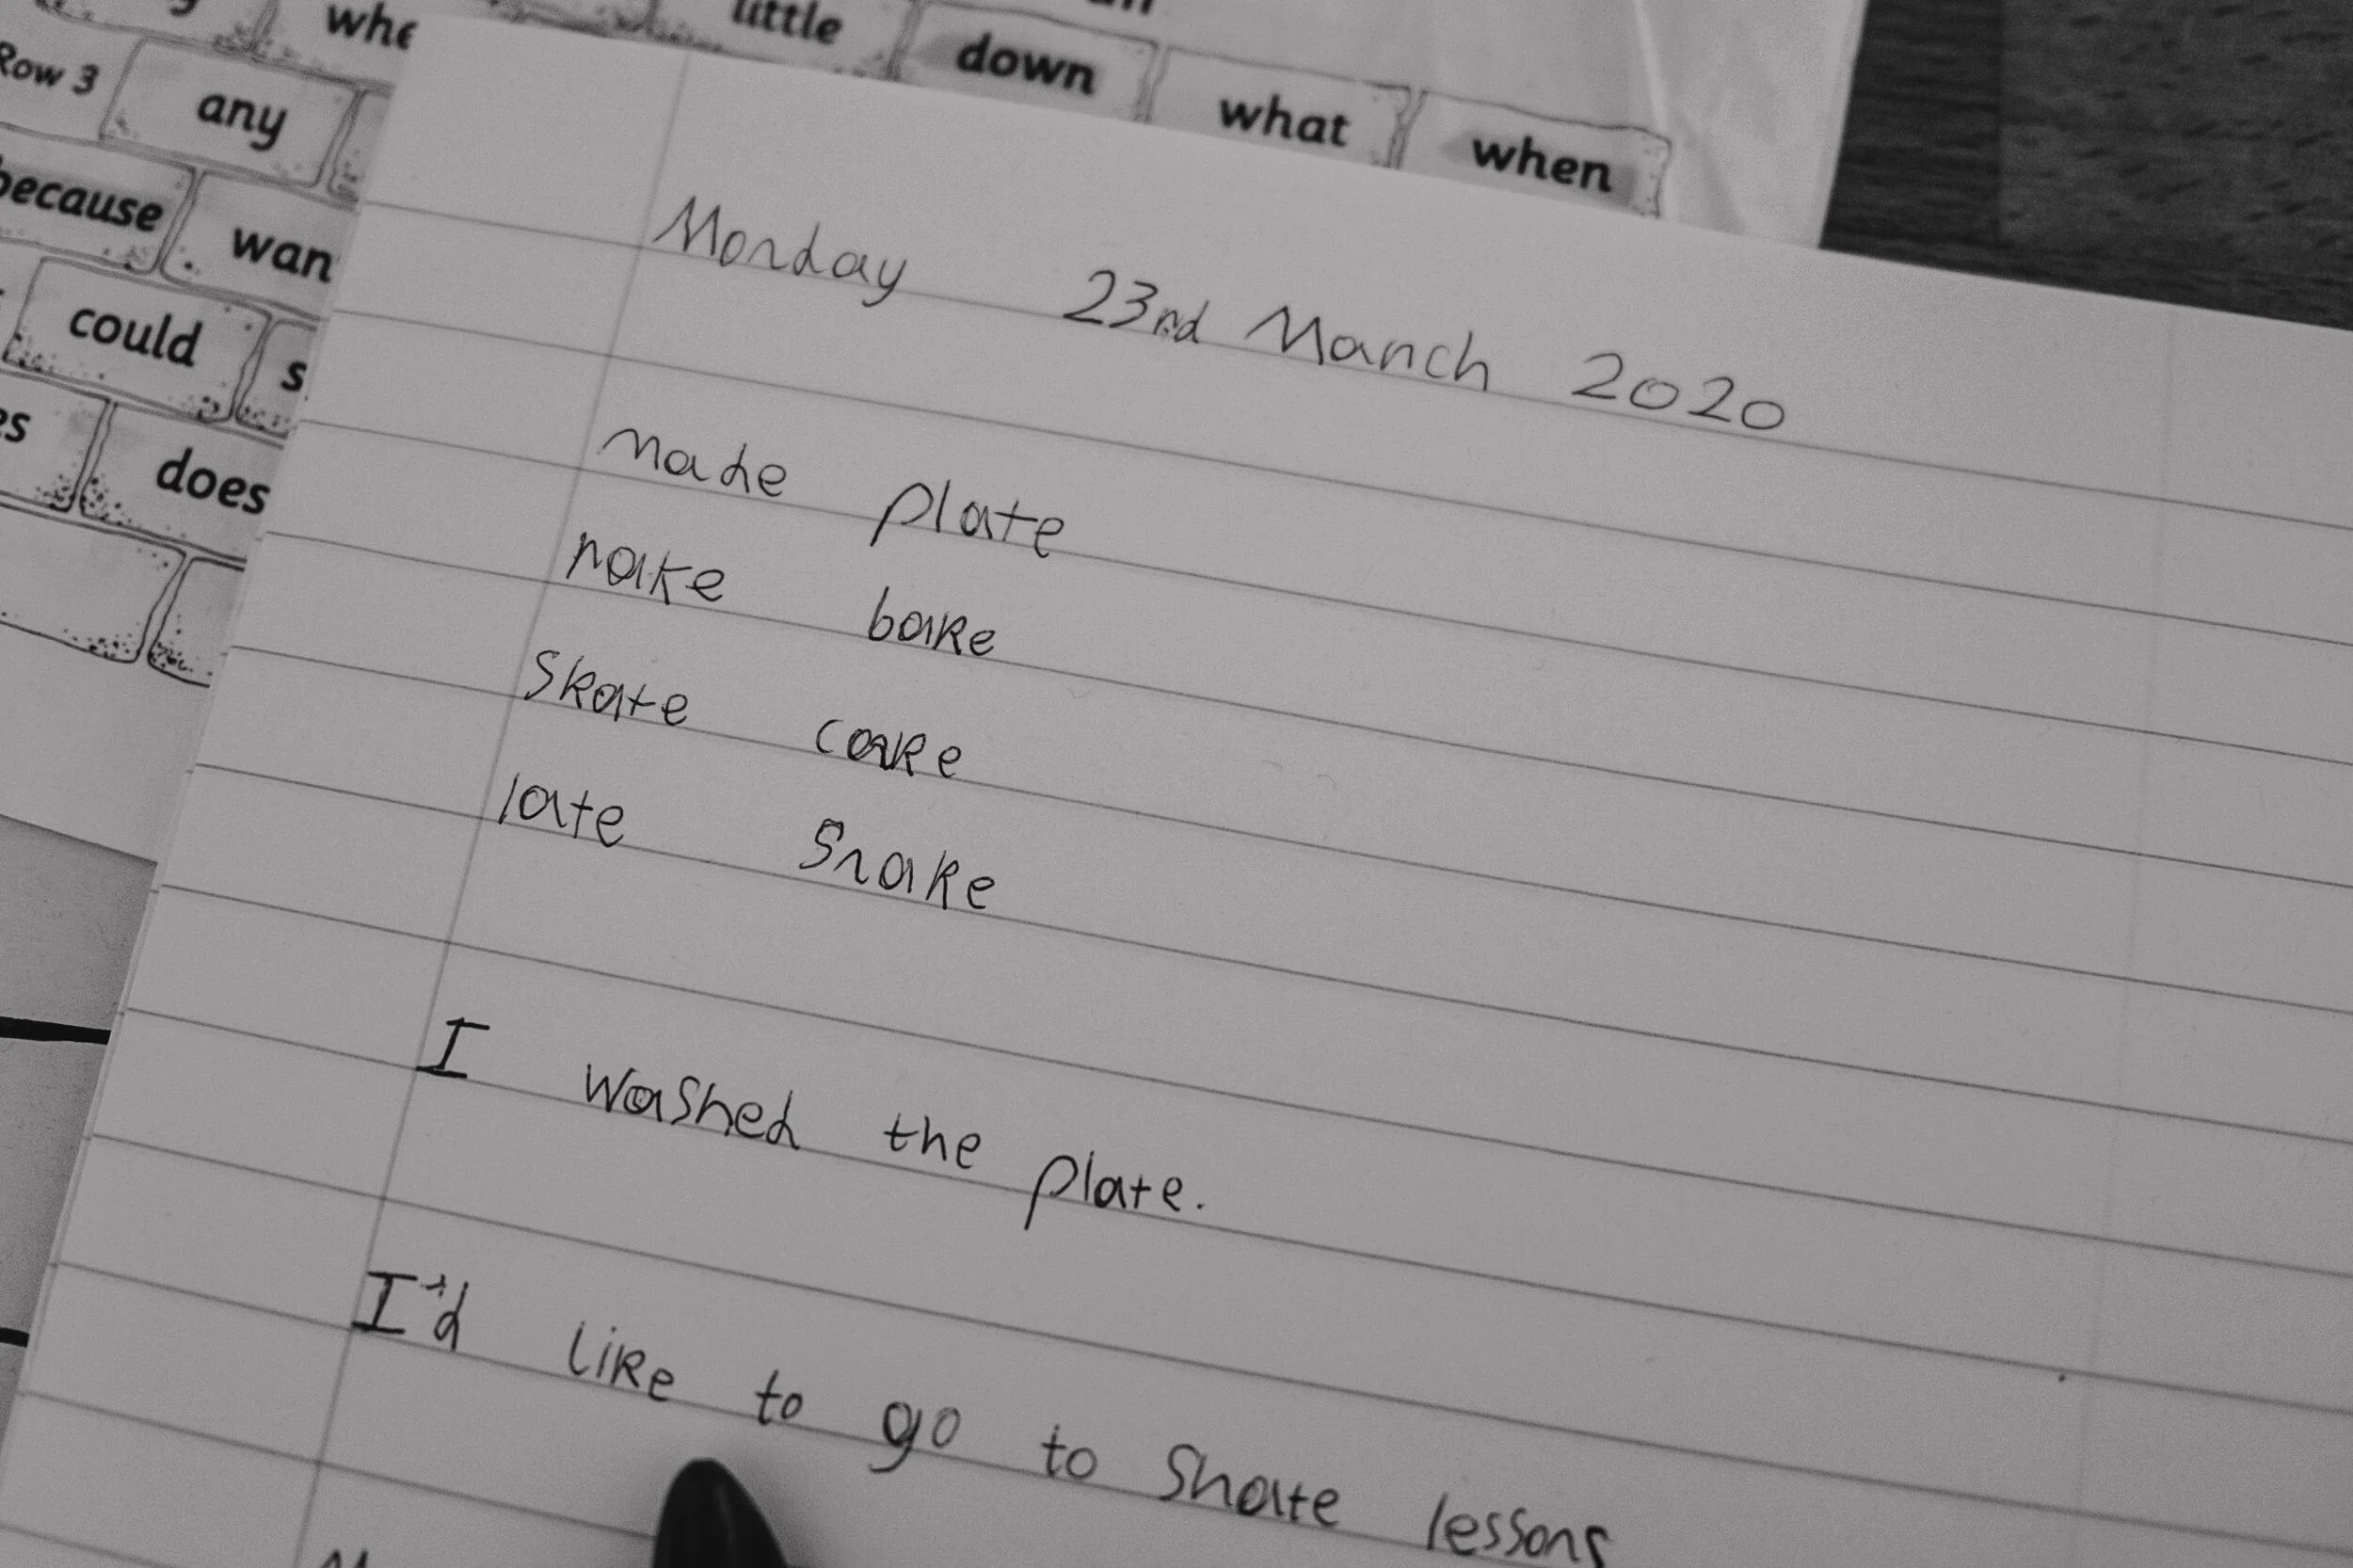 little
down
what
when
Row 3
any
because
could
does
Monday 23rd March 2020
made plate
rake bake
Skate cake
late Snake
I washed the plate.
I'd like to go to Shate lessons